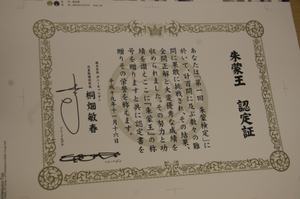 朱蒙王 認定証
あなたは「第一回 朱蒙検定」に
於いて、計百問に及ぶ数々の難
問に果敢に挑戦され、その結果、
全問正解と大変優秀な成績を
収められました。その努力と功
績を讃え、ここに「朱蒙王」の称
号を贈りますと共に認定書を
贈りその栄誉を称えます。
平成十九年十一月十六日
桐畑敏春